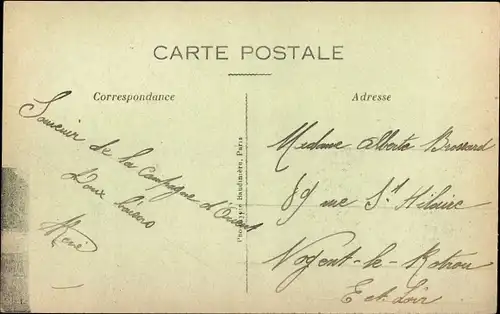 CARTE POSTALE
Correspondance
Adresse
Souvenir de la Campagne d'Orient
Doux baisers
René
Baudinière, Paris
Madame Alberte Brossard
89 rue St Hilaire
Nogent-le-Rotrou
E et Loir